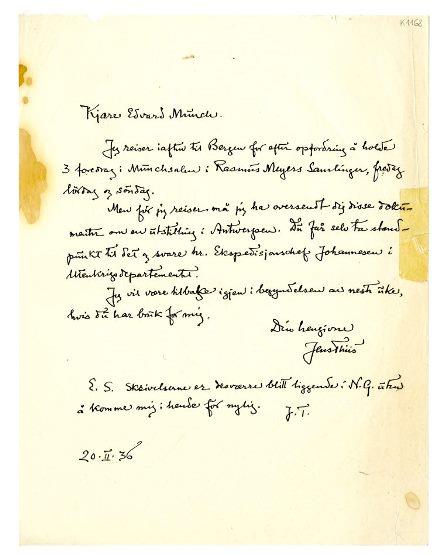 K 1168
Kjære Edvard Munch.
Jeg reiser iaften til Bergen for efter opfordring å holde
3 foredrag i Munchsalen i Rasmus Meyers Samlinger, fredag
lördag og söndag.
Men för jeg reiser må jeg ha oversendt dig disse doku-
menter om en utstilling i Antwerpen. Du får selv ta stand-
punkt til det og svare hr. Ekspedisjonschef Johannesen i
Utenriksdepartementet.
Jeg vil være tilbake igjen i begyndelsen av neste uke,
hvis du har bruk for mig.
Din hengivne
Jens Thiis
E. S. Skrivelserne er desværre blitt liggende i N.G. uten
å komme mig i hende för nylig. J.T.
20-II-36